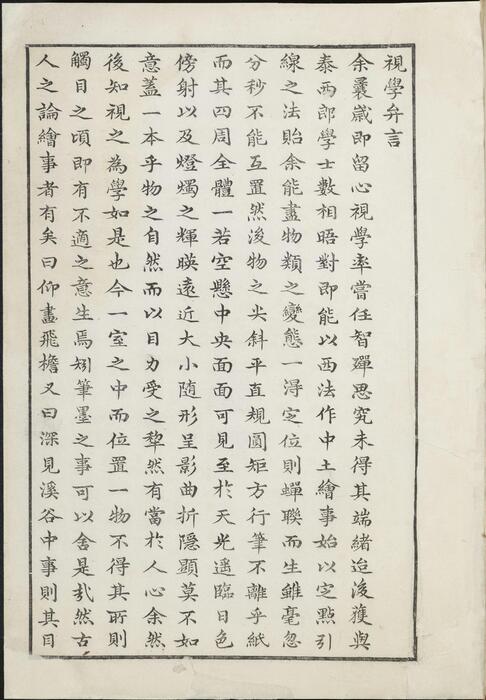 視學弁言
余曩歲即留心視學率嘗任智殫思究未得其端緒迨後獲與
泰西郎學士數相晤對即能以西法作中土繪事始以定點引
線之法貽余能盡物類之變態一得定位則蟬聯而生雖毫忽
分秒不能互置然後物之尖斜平直規圓矩方行筆不離乎紙
而其四周全體一若空懸中央面面可見至於天光遙臨日色
傍射以及燈燭之輝暎遠近大小隨形呈影曲折隱顯莫不如
意蓋一本乎物之自然而以目力受之犂然有當於人心余然
後知視之為學如是也今一室之中而位置一物不得其所則
觸目之頃即有不適之意生焉矧筆墨之事可以舍是㢤然古
人之論繪事者有矣曰仰畫飛檐又曰深見溪谷中事則其目